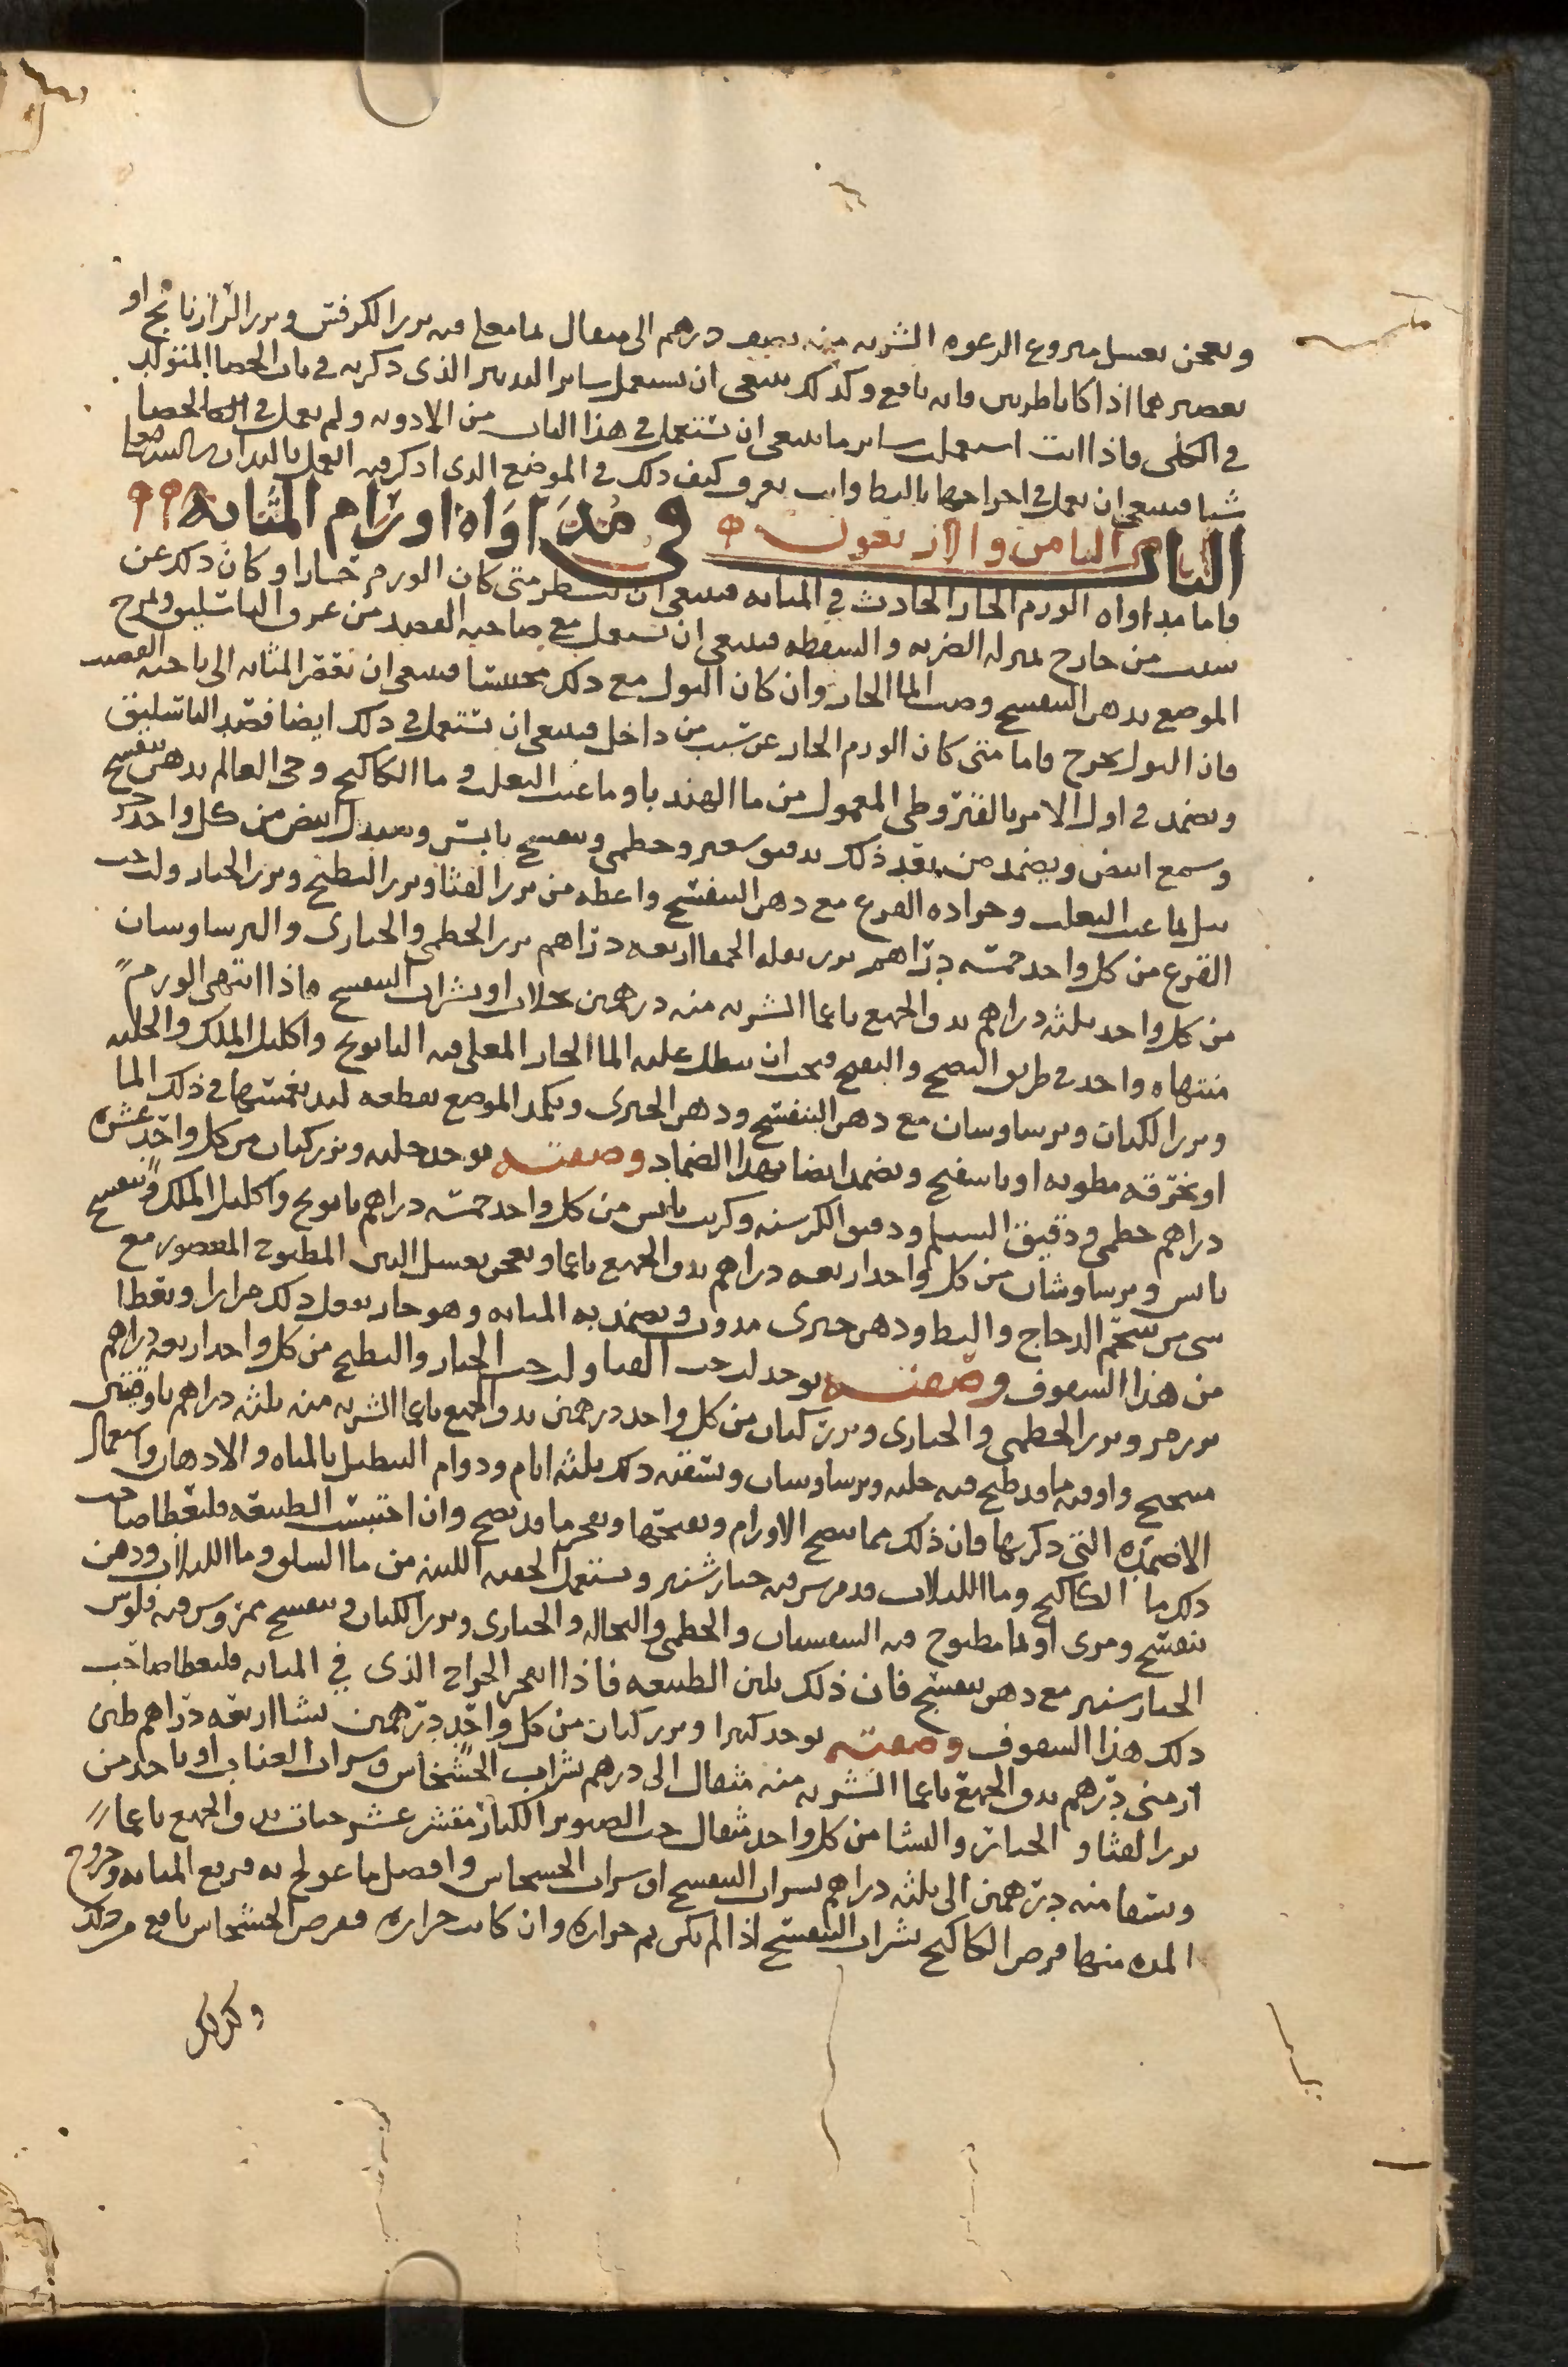 ويعجن بعسل منزوع الرغوه الشربه منه نصف درهم الى مثقال بما مغلي فيه بزر الكرفس وبزر الرازيانج او
بعصيرهما اذا كانا طريين فانه نافع وكذلك ينبغي ان يستعمل ساير التدبير الذي ذكرته في باب الحصا المتولد
في الكلى فاذا انت استعملت ساير ما ينبغي ان تستعمل في هذا الباب من الادويه ولم يعمل في الحصا
شيا فينبغي ان يعمل في اخراجها بالبط وانت تعرف كيف ذلك في الموضع الذي اذكر فيه العمل باليد ان شا الله تعالى
الباب الثامن والاربعون في مداواه اورام المثانه
فاما مداواه الورم الحار الحادث في المثانه فينبغي ان تنظر متى كان الورم حارا وكان ذلك عن
سبب من خارج بمنزله الضربه والسقطه فينبغي ان تستعمل مع صاحبه الفصد من عرق الباسليق وتمرخ
الموضع بدهن البنفسج وصب الما الحار وان كان البول مع ذلك محتبسا فينبغي ان تغمز المثانه الى ناحيه القضيب
فان البول يخرج فاما متى كان الورم الحار عن سبب من داخل فينبغي ان تستعمل في ذلك ايضا فصد الباسليق
وتضمد في اول الامر بالقيروطي المعمول من ما الهندبا وما عنب الثعلب وما الكاكنج وحي العالم بدهن بنفسج
وشمع ابيض ويضمد من بعد ذلك بدقيق شعير وخطمي وبنفسج يابس وصندل ابيض من كل واحد جز
يبل بما عنب الثعلب وجراده القرع مع دهن البنفسج واعطه من بزر القثا وبزر البطيخ وبزر الخيار ولب حب
القرع من كل واحد خمسه دراهم بزر بقله الحمقا اربعه دراهم بزر الخطمي والخبازي والبرساوسان
من كل واحد ثلثه دراهم يدق الجميع ناعما الشربه منه درهمين بجلاب او بشراب البنفسج فاذا انتهى الورم
منتهاه واخذ في طريق النضج والتفتح فيجب ان ينطل عليه الما الحار المغلي فيه البابونج واكليل الملك والحلبه
وبزر الكتان وبرساوسان مع دهن البنفسج ودهن الخيري ويكمد الموضع بقطعه لبد يغمسها في ذلك الما
او بخرقه مطويه او باسفنج ويضمد ايضا بهذا الضماد وصفته يوخذ حلبه وبزر كتان من كل واحد عشره
دراهم خطمي ودقيق السيلم ودقيق الكرسنه وكرنب يابس من كل واحد خمسه دراهم بابونج واكليل الملك وبنفسج
يابس وبرساوشان من كل واحد اربعه دراهم يدق الجميع ناعما ويعجن بعسل التين المطبوخ المعصور مع
شي من شحم الدجاج والبط ودهن خيري مدوف ويضمد به المثانه وهو حار يفعل ذلك مرارا ويعطا
من هذا السفوف وصفته يوخذ لب حب القثا ولب حب الخيار والبطيخ من كل واحد اربعه دراهم
بزر مرو وبزر الخطمي والخبازي وبزر كتان من كل واحد درهمين يدق الجميع ناعما الشربه منه ثلثه دراهم باوقيتين
ميبختج واوقيه ما قد طبخ فيه حلبه وبرساوسان وتسقيه ذلك ثلثه ايام ودوام التنطيل بالمياه والادهان واستعمال
الاضمده التي ذكرتها فان ذلك مما ينضج الاورام ويفتحها ويفجر ما قد نضج وان احتبست الطبيعه فليعطا صاحب
ذلك ما الكاكنج وما اللبلاب قد مرس فيه خيار شنبر وتستعمل الحقنه اللينه من ما السلق وما اللبلاب ودهن
بنفسج ومري او بما مطبوخ فيه السبستان والخطمي والنخاله والخبازي وبزر الكتان وبنفسج ممزوس فيه فلوس
الخيارشنبر مع دهن بنفسج فان ذلك يلين الطبيعه فاذا انفجر الخراج الذي في المثانه فليعطا صاحب
ذلك هذا السفوف وصفته يوخذ كثيرا وبزر كتان من كل واحد درهمين نشا اربعه دراهم طين
ارمني درهم يدق الجميع ناعما الشربه منه مثقال الى درهم بشراب الخشخاش وشراب العناب او ياخذ من
بزر القثا والخيار والنشا من كل واحد مثقال حب الصنوبر الكبار مقشر عشر حبات يدق الجميع ناعما
ويسقا منه درهمين الى ثلثه دراهم بشراب البنفسج او شراب الخشخاش وافضل ما عولج به قروح المثانه وخروج
المده منها قرص الكاكنج بشراب البنفسج اذا لم يكن ثم حراره وان كانت حراره فقرص الخشخاش نافع من ذلك
وكذلك